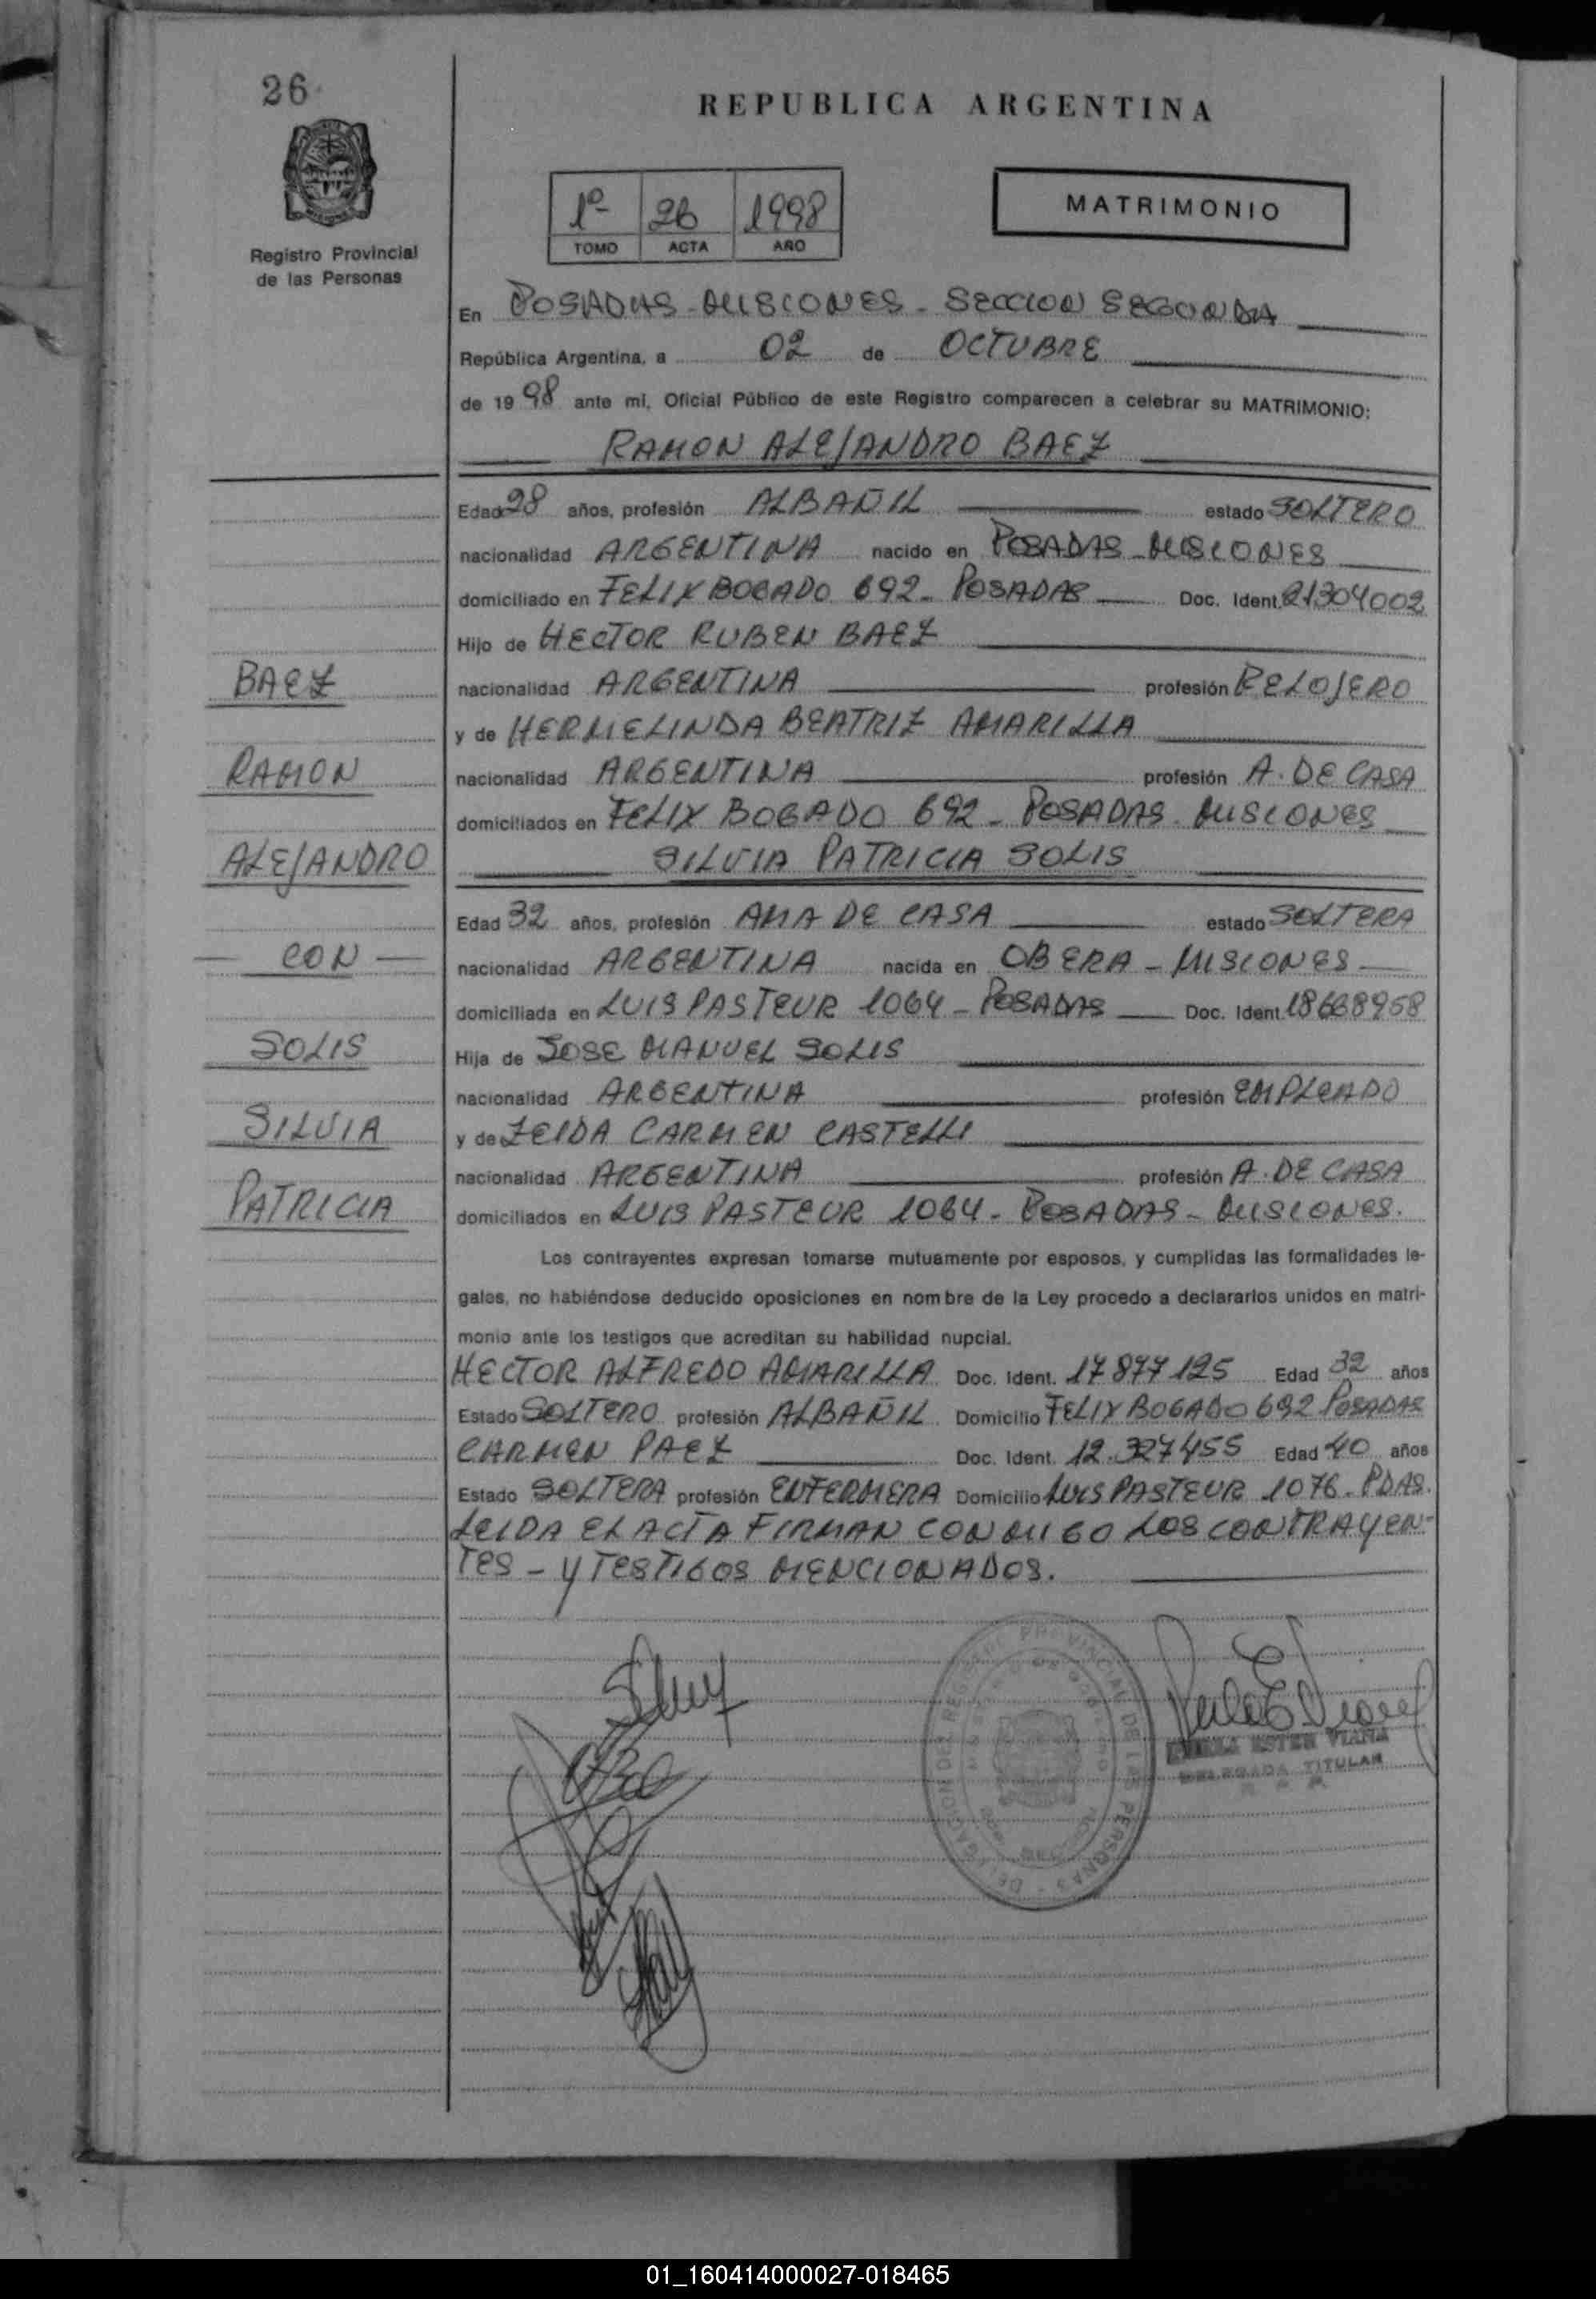 26
REPUBLICA ARGENTINA
1º 26 1998
TOMO ACTA AÑO
MATRIMONIO
Registro Provincial
de las Personas
En POSADAS - MISIONES - SECCION SEGUNDA
República Argentina, a 02 de OCTUBRE
de 1998 ante mí, Oficial Público de este Registro comparecen a celebrar su MATRIMONIO:
RAMON ALEJANDRO BAEZ
Edad 28 años, profesión ALBAÑIL estado SOLTERO
nacionalidad ARGENTINA nacido en POSADAS - MISIONES
domiciliado en FELIX BOGADO 692 - POSADAS Doc. Ident. 21304002
Hijo de HECTOR RUBEN BAEZ
nacionalidad ARGENTINA profesión RELOJERO
y de HERMELINDA BEATRIZ AMARILLA
nacionalidad ARGENTINA profesión A. DE CASA
domiciliados en FELIX BOGADO 692 - POSADAS - MISIONES
SILVIA PATRICIA SOLIS
Edad 32 años, profesión AMA DE CASA estado SOLTERA
nacionalidad ARGENTINA nacida en OBERA - MISIONES
domiciliada en LUIS PASTEUR 1064 - POSADAS Doc. Ident.
Hija de JOSE MANUEL SOLIS
nacionalidad ARGENTINA profesión EMPLEADO
y de ZEIDA CARMEN CASTELLI
nacionalidad ARGENTINA profesión A. DE CASA
domiciliados en LUIS PASTEUR 1064 - POSADAS - MISIONES.
BAEZ
RAMON
ALEJANDRO
— CON —
SOLIS
SILVIA
PATRICIA
Los contrayentes expresan tomarse mutuamente por esposos, y cumplidas las formalidades le-
gales, no habiéndose deducido oposiciones en nombre de la Ley procedo a declararlos unidos en matri-
monio ante los testigos que acreditan su habilidad nupcial.
HECTOR ALFREDO AMARILLA Doc. Ident. 17877125 Edad 32 años
Estado SOLTERO profesión ALBAÑIL Domicilio FELIX BOGADO 692 POSADAS
CARMEN PAEZ Doc. Ident. 12.327455 Edad 40 años
Estado SOLTERA profesión ENFERMERA Domicilio LUIS PASTEUR 1076 - PDAS.
LEIDA EL ACTA FIRMAN CONMIGO LOS CONTRAYEN-
TES - Y TESTIGOS MENCIONADOS.
DELEGACION DEL REGISTRO PROVINCIAL DE LAS PERSONAS
ESTER VIANA
DELEGADA TITULAR
01_160414000027-018465